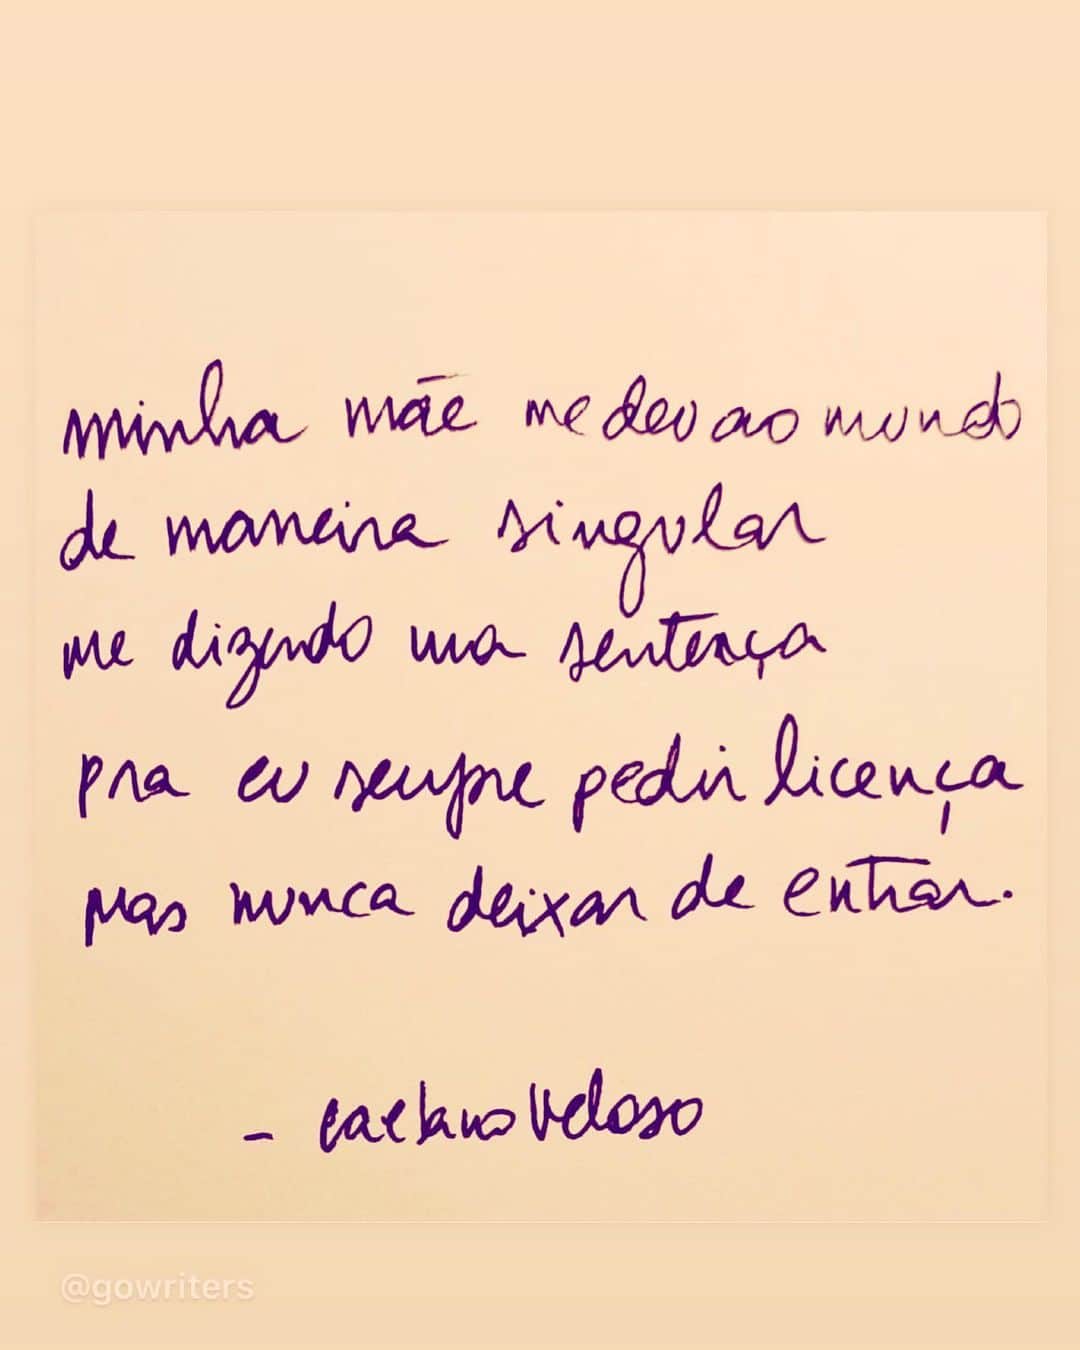 minha mãe me deu ao mundo
de maneira singular
me dizendo uma sentença
pra eu sempre pedir licença
mas nunca deixar de entrar.
- Caetano Veloso
@gowriters